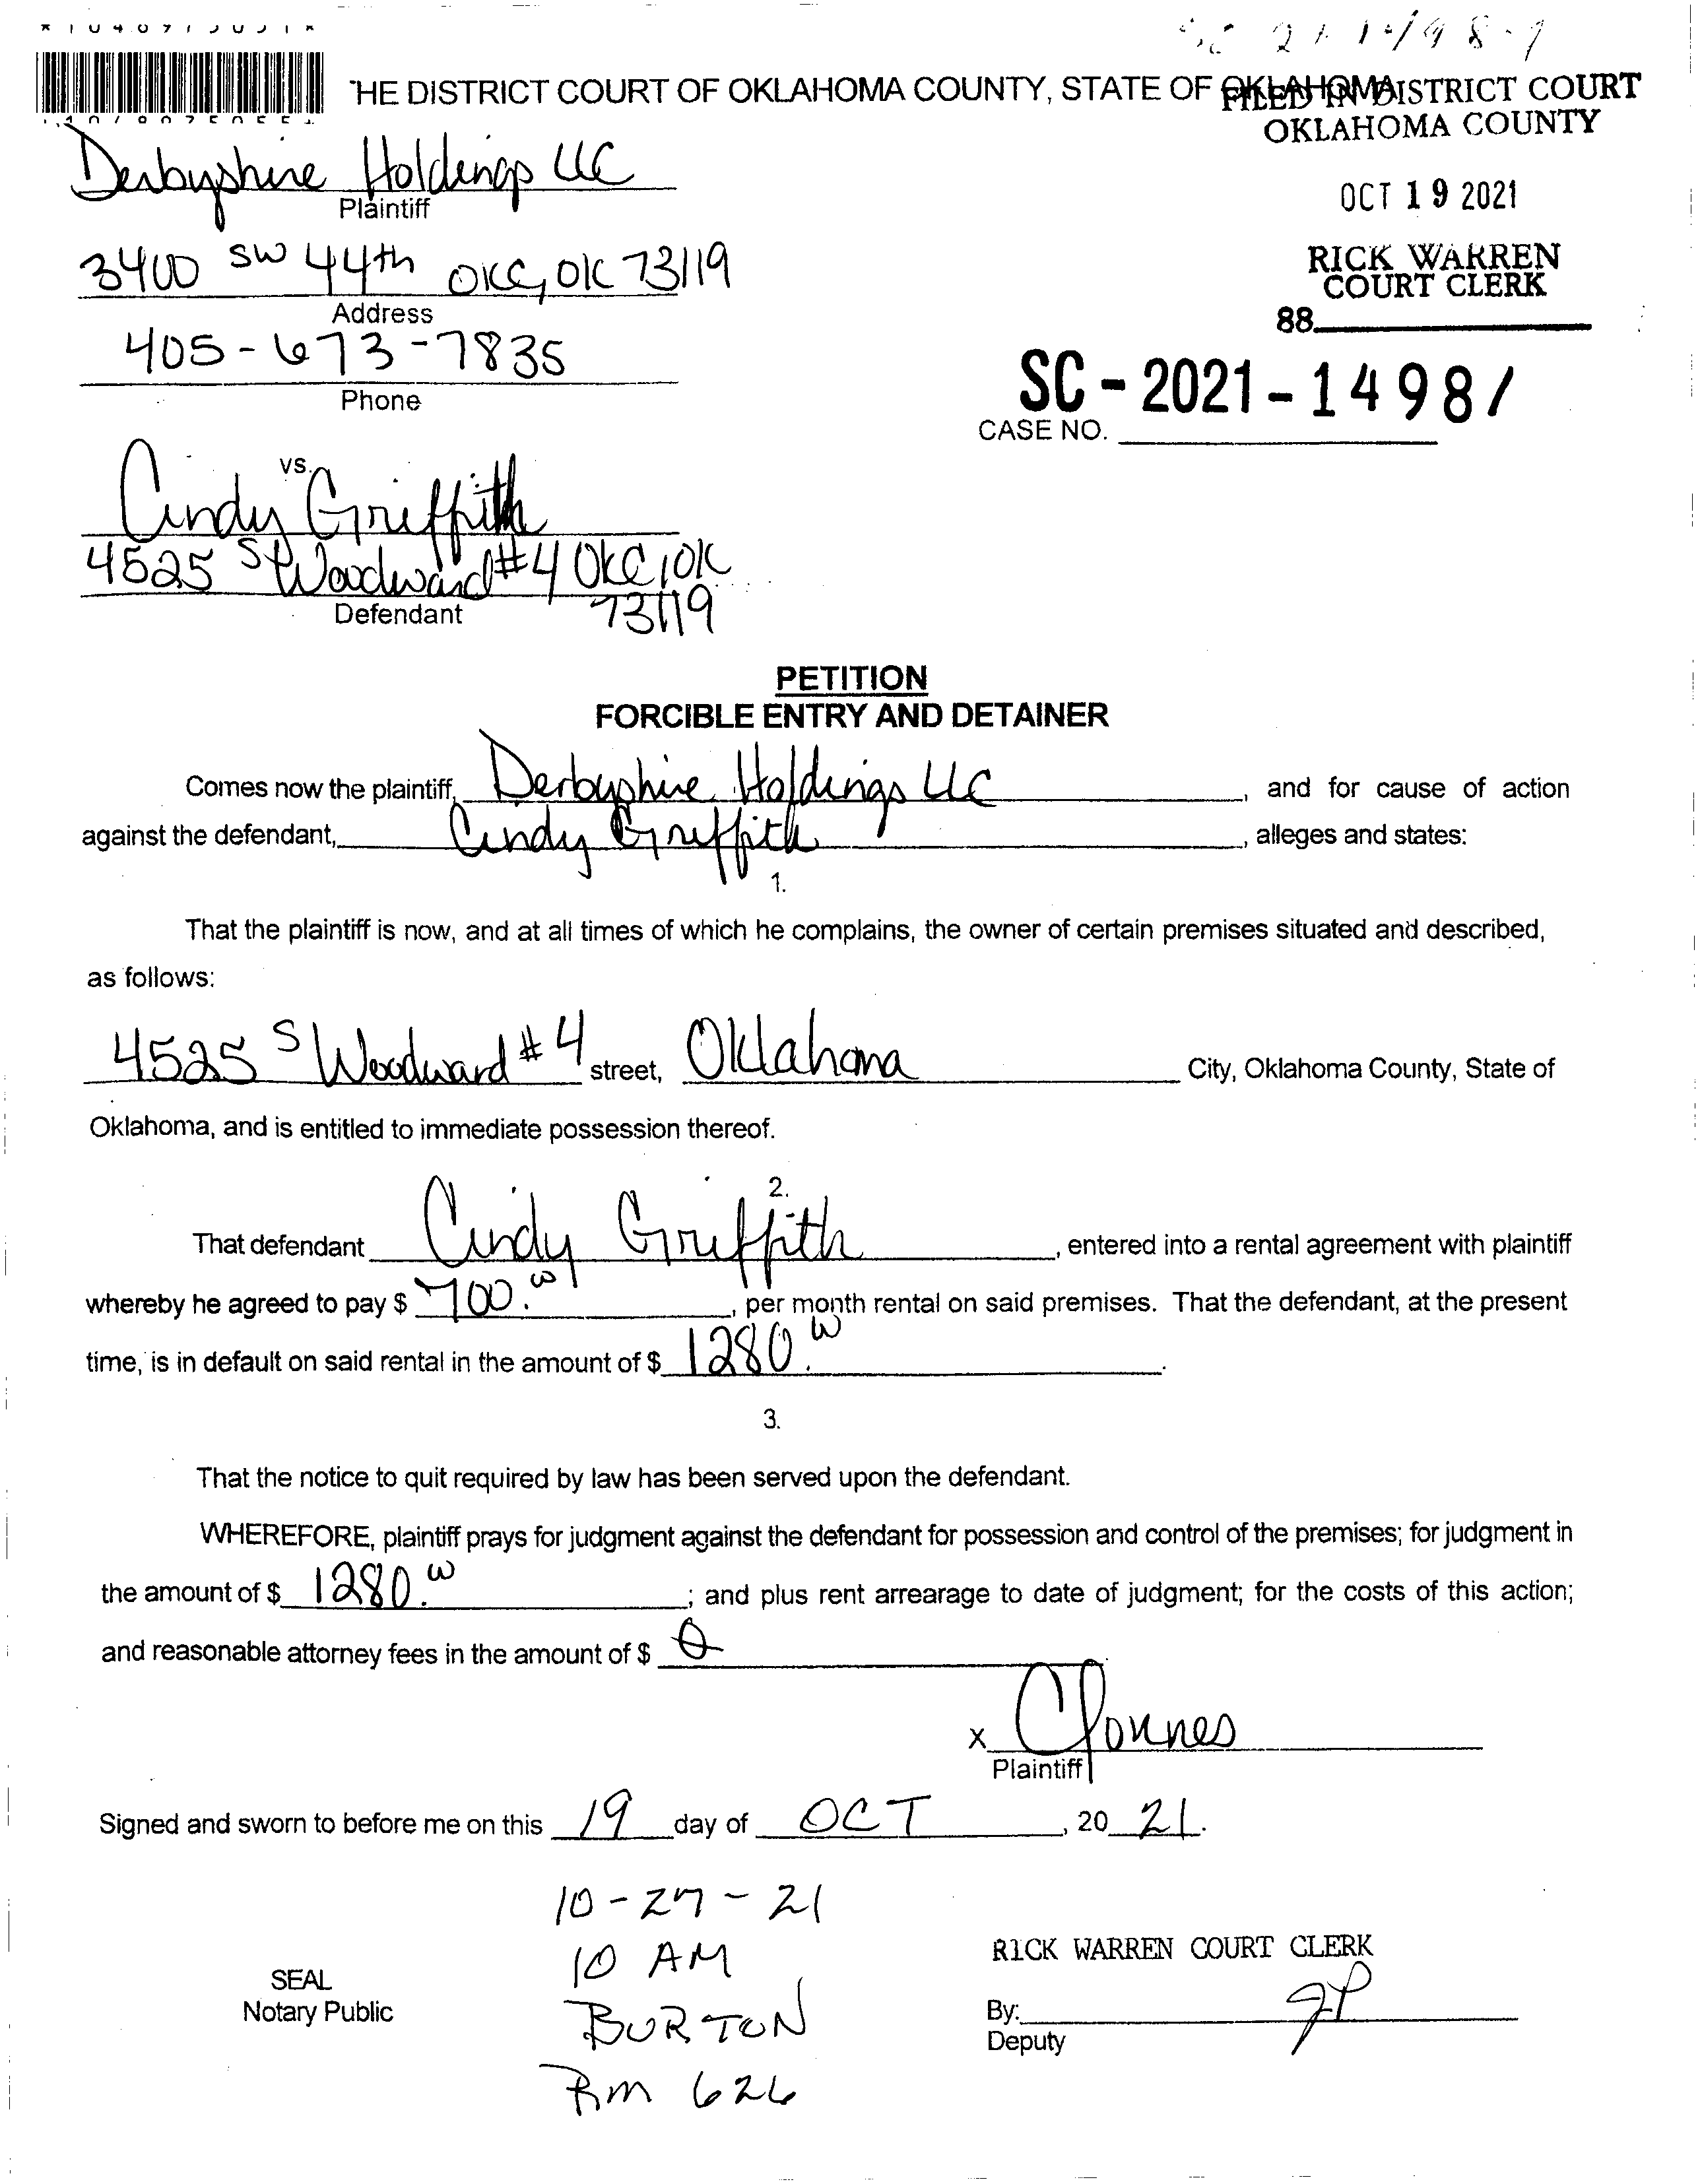 THE DISTRICT COURT OF OKLAHOMA COUNTY, STATE OF OKLAHOMA
FILED IN DISTRICT COURT
OKLAHOMA COUNTY
OCT 19 2021
RICK WARREN
COURT CLERK
88
SC-2021-1498/
CASE NO.
Derbyshire Holdings LLC
Plaintiff
3400 SW 44th OKC, OK 73119
Address
405-673-7835
Phone
vs.
Cindy Griffith
4525 S Woodward #4 OKC, OK
73119
Defendant
PETITION
FORCIBLE ENTRY AND DETAINER
Comes now the plaintiff, Derbyshire Holdings LLC, and for cause of action
against the defendant, Cindy Griffith, alleges and states:
1.
That the plaintiff is now, and at all times of which he complains, the owner of certain premises situated and described,
as follows:
4525 S Woodward #4 street, Oklahoma City, Oklahoma County, State of
Oklahoma, and is entitled to immediate possession thereof.
2.
That defendant Cindy Griffith, entered into a rental agreement with plaintiff
whereby he agreed to pay $ 700.00, per month rental on said premises. That the defendant, at the present
time, is in default on said rental in the amount of $ 1280.00.
3.
That the notice to quit required by law has been served upon the defendant.
WHEREFORE, plaintiff prays for judgment against the defendant for possession and control of the premises; for judgment in
the amount of $ 1280.00; and plus rent arrearage to date of judgment; for the costs of this action;
and reasonable attorney fees in the amount of $ 0
X
Plaintiff
Signed and sworn to before me on this 19 day of OCT, 20 21.
10-27-21
10 AM
BURTON
Rm 626
SEAL
Notary Public
RICK WARREN COURT CLERK
By: JP
Deputy